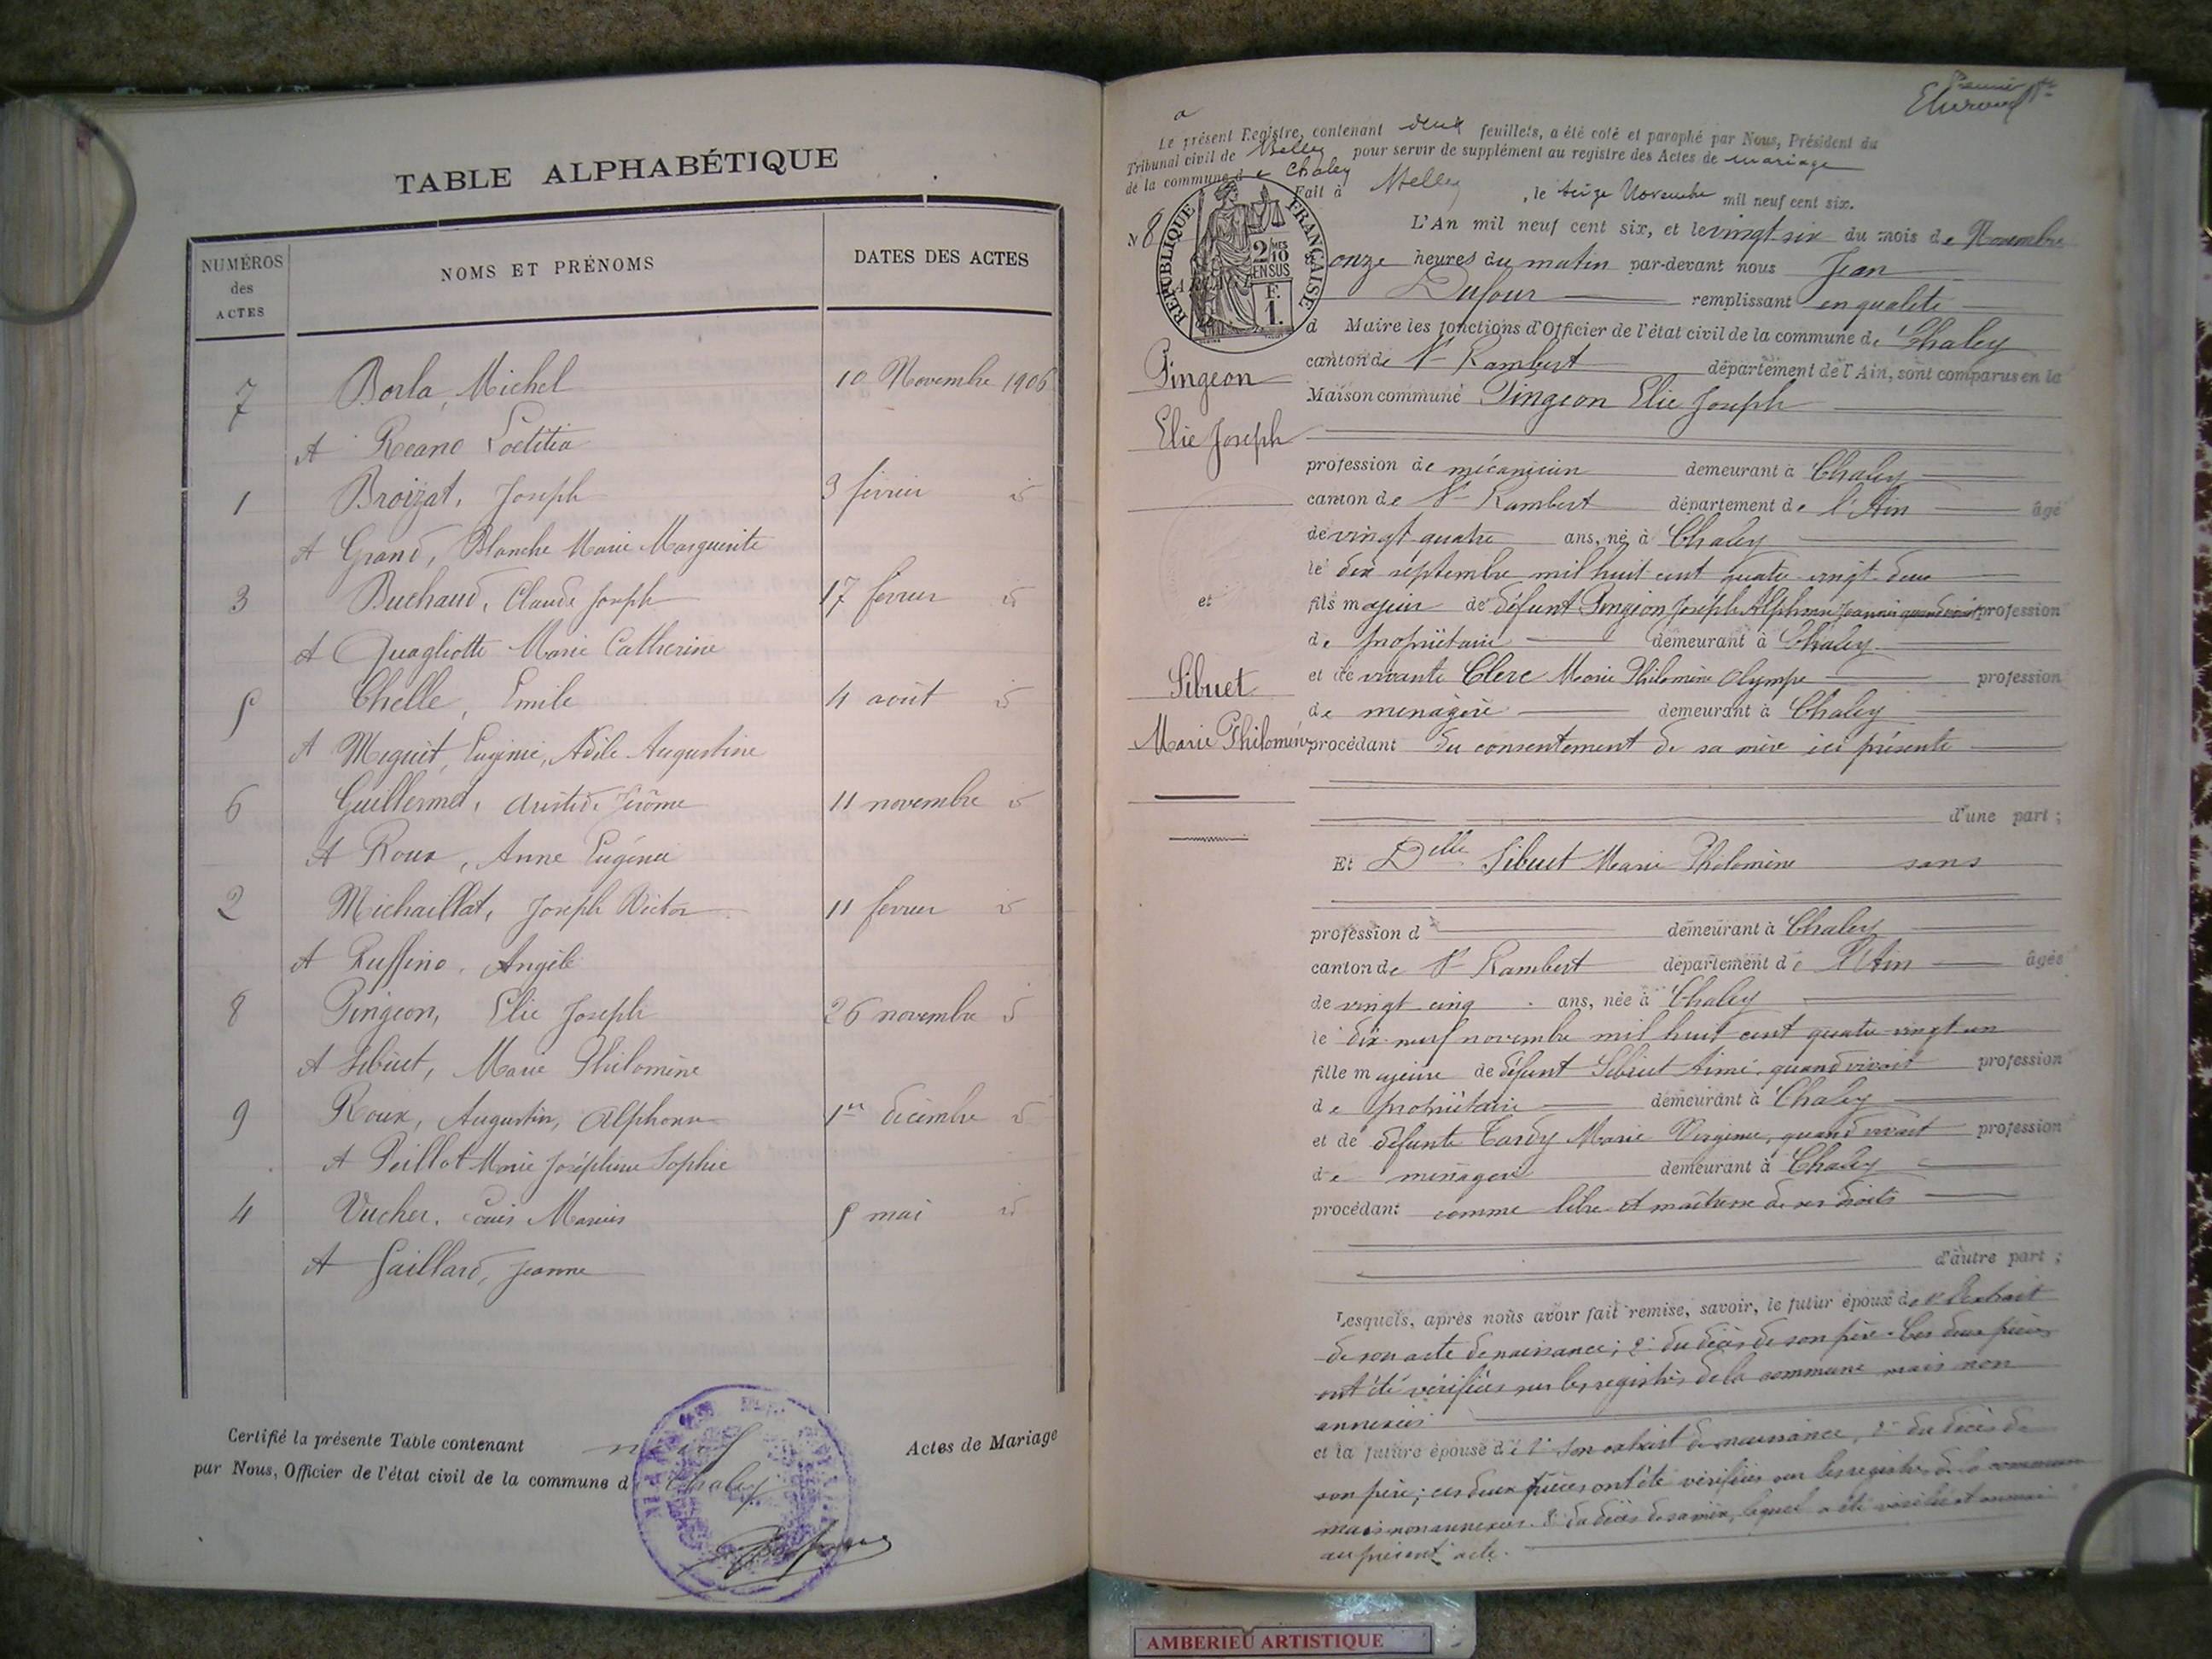 TABLE ALPHABÉTIQUE
NUMÉROS
des
ACTES
NOMS ET PRÉNOMS
DATES DES ACTES
7 Borla, Michel 10 Novembre 1906
et Reano Loetitia
1 Broizat, Joseph 3 février id
et Grand, Blanche Marie Marguerite
3 Buchaud, Claude Joseph 17 fevrier id
et Quagliotte Marie Catherine
5 Chelle, Emile 4 août id
et Meguit, Eugénie, Adèle Augustine
6 Guillermet, Aristide Jérôme 11 novembre id
et Roux, Anne Eugénie
2 Michaillat, Joseph Victor 11 fevrier id
et Ruffino, Angèle
8 Pingeon, Elie Joseph 26 novembre id
et Sibuet, Marie Philomène
9 Roux, Augustin, Alphonse 1er décembre id
et Peillot Marie Joséphine Sophie
4 Vucher, Louis Marius 5 mai id
et Gaillard, Jeanne
Certifié la présente Table contenant neuf Actes de Mariage
par Nous, Officier de l'état civil de la commune d Chaley
Le présent Registre, contenant deux feuillets, a été coté et paraphé par Nous, Président du
Tribunal civil de Belley pour servir de supplément au registre des Actes de mariage
de la commune de Chaley
Fait à Belley, le seize Novembre mil neuf cent six.
N 8
RÉPUBLIQUE FRANÇAISE
2/10 MES
EN SUS
F.
1.
L'An mil neuf cent six, et le vingt six du mois de Novembre
à onze heures du matin par-devant nous Jean
Dufour remplissant en qualité
d Maire les fonctions d'Officier de l'état civil de la commune de Chaley
canton de St Rambert département de l'Ain, sont comparus en la
Maison commune Pingeon Elie Joseph
Pingeon
Elie Joseph
profession de mécanicien demeurant à Chaley
canton de St Rambert département de l'Ain âgé
de vingt quatre ans, né à Chaley
le dix septembre mil huit cent quatre vingt deux
et
fils majeur de défunt Pingeon Joseph Alphonse quand vivait profession
de propriétaire demeurant à Chaley
et de vivante Clerc Marie Philomène Olympe profession
Sibuet
Marie Philomène
de ménagère demeurant à Chaley
procédant du consentement de sa mère ici présente
d'une part ;
Et Delle Sibuet Marie Philomène sans
profession d demeurant à Chaley
canton de St Rambert département de l'Ain âgée
de vingt cinq ans, née à Chaley
le dix-neuf novembre mil huit cent quatre-vingt un
fille majeure de défunt Sibuet Aimé, quand vivait profession
de propriétaire demeurant à Chaley
et de défunte Tardy Marie Virginie, quand vivait profession
de ménagère demeurant à Chaley
procédant comme libre et maîtresse de ses droits
d'autre part ;
Lesquels, après nous avoir fait remise, savoir, le futur époux de 1° l'extrait
de son acte de naissance ; 2° du décès de son père. Ces deux pièces
ont été vérifiées sur les registres de la commune mais non
annexées.
et la future épouse de 1° son extrait de naissance, 2° du décès de
son père ; ces deux pièces ont été vérifiées sur les registres de la commune
mais non annexées. 3° du décès de sa mère, lequel a été vérifié et annexé
au présent acte.
AMBERIEU ARTISTIQUE